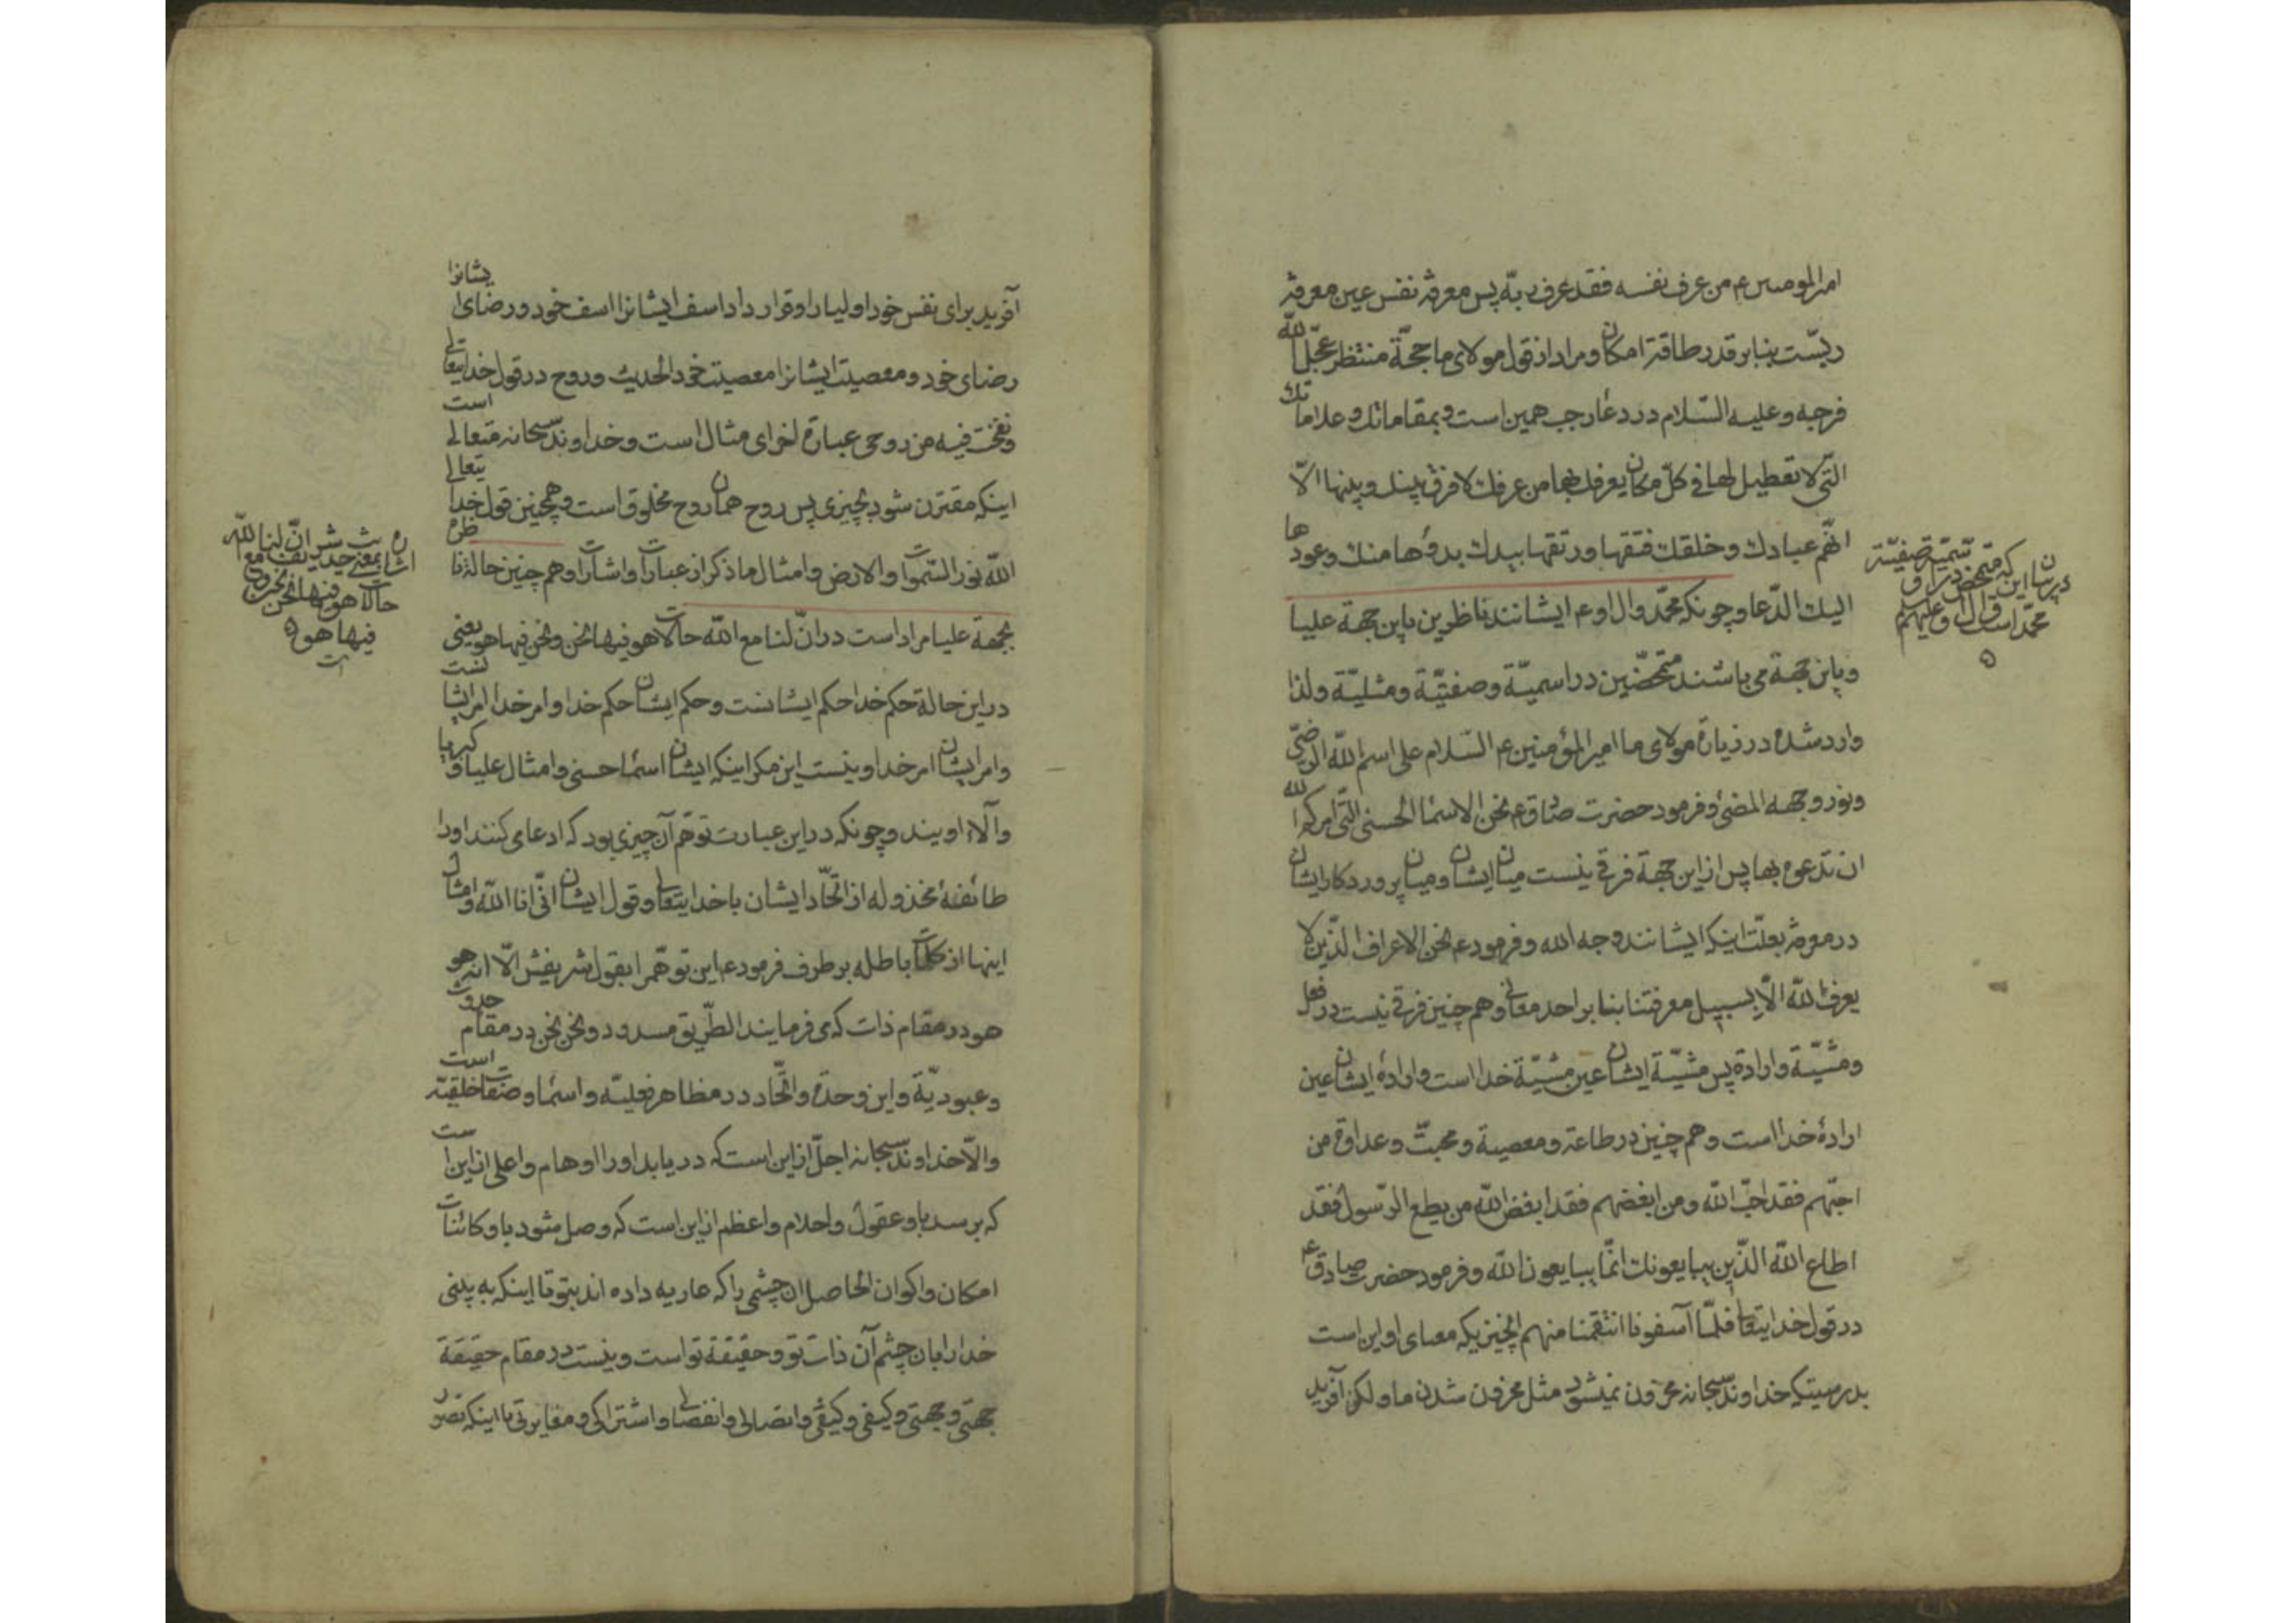 امیرالمومنین ع من عرف نفسه فقد عرف ربّه پس معرفة نفس عین معرفة
ربّست بنابر قدر طاقة امکان و مراد از قول مولای ما حجّة منتظر عجّل الله
فرجه و علیه السّلام در دعاء رجب همین است و بمقاماتك و علاماتك
التّی لا تعطیل لها فی کلّ مکان یعرفك بها من عرفك لا فرق بینك و بینها الّا
انّهم عبادك و خلقك فتقها و رتقها بیدك بدؤها منك و عودها
الیك الدّعا و چونکه محمّد و ال او ع ایشانند ناظرین باین جهة علیا
و باین جهة می باشند متمحّضین در اسمیّة و صفتیّة و مثلیّة ولذا
وارد شده در زیارة مولای ما امیرالمؤمنین ع السّلام علی اسم الله الرضیّ
و نور وجهه المضئ و فرمود حضرت صادق ع نحن الاسما الحسنی التّی امر کم الله
ان تدعوه بها پس از این جهة فرقی نیست میان ایشان و میان پروردکار ایشان
در معرفة بعلّت اینکه ایشانند وجه الله و فرمود ع نحن الاعراف الذّین لا
یعرف الله الّا بسبیل معرفتنا بنا بر احد معانی و هم چنین فرقی نیست در فعل
و مشیّة و ارادة پس مشیّة ایشان عین مشیّة خدا است و ارادهٔ ایشان عین
ارادهٔ خدا است و هم چنین در طاعة و معصیة و محبّت و عداوة من
احبّهم فقد احبّ الله و من ابغضهم فقد ابغض الله من یطع الرّسول فقد
اطاع الله الذّین یبایعونك انمّا یبایعون الله و فرمود حضرت صادق ع
در قول خدایتعالی فلمّا آسفونا انتقمنا منهم انچنین یکه معنای او این است
بدرستیکه خداوند سبحانه محزون نمیشود مثل محزون شدن ما و لکن آفرید
در بیان این که متمحّض در اسمیّة صفتیّة
محمّد است و ال او علیهم
آفرید برای نفس خود اولیا را و قرار داد اسف ایشانرا اسف خود و رضای ایشانرا
رضای خود و معصیت ایشانرا معصیت خود الحدیث و روح در قول خدایتعالی
و نفخت فیه من روحی عبارة اخرای مثال است و خداوند سبحانه متعالی است
اینکه مقترن شود بچیزی پس روح همان روح مخلوق است و همچنین قول خدایتعالی
الله نور السّموات والارض و امثال ما ذکر از عبارات و اشارات و هم چنین حالة ناظره
بجهة علیا مراد است در انّ لنا مع الله حالات هو فیها نحن و نحن فیها هو یعنی
در این حالة حکم خدا حکم ایشانست و حکم ایشان حکم خدا و امر خدا امر ایشانست
و امر ایشان امر خدا و نیست این مکر اینکه ایشان اسمأ حسنی و امثال علیا و کبریا
و آلاء اویند و چونکه در این عبارت توهّم آن چیزی بود که ادعا می کنند او را
طائفهٔ مخذوله از اتحّاد ایشان با خدایتعالی و قول ایشان انّی انا الله و امثال
اینها از کلمات باطله بر طرف فرمود ع این توهّم را بقول شریفش الّا انه هو
هو در مقام ذات که می فرمایند الطّریق مسدود و نحن نحن در مقام حدوث
و عبودیّة و این وحدة و اتحّاد در مظاهر فعلیّه و اسما و صفات خلقیّة است
و الّا خداوند سبحانه اجلّ از این است که در یابد او را اوهام و اعلی از این است
که برسد باو عقول و احلام و اعظم از این است که وصل شود باو کائنات
امکان و اکوان الحاصل ان چشمی را که عاریه داده اند بتو تا اینکه به بینی
خدا را بان چشم آن ذات تو و حقیقة تو است و نیست در مقام حقیقة
جهتی و جهتی و کیفی و کیفی و اتصالی و انفصالی و اشتراکی و مغایرتی با اینکه تصور
اشاره بمعنی حدیث شریف انّ لنا مع الله
حالات هو فیها نحن و نحن
فیها هو